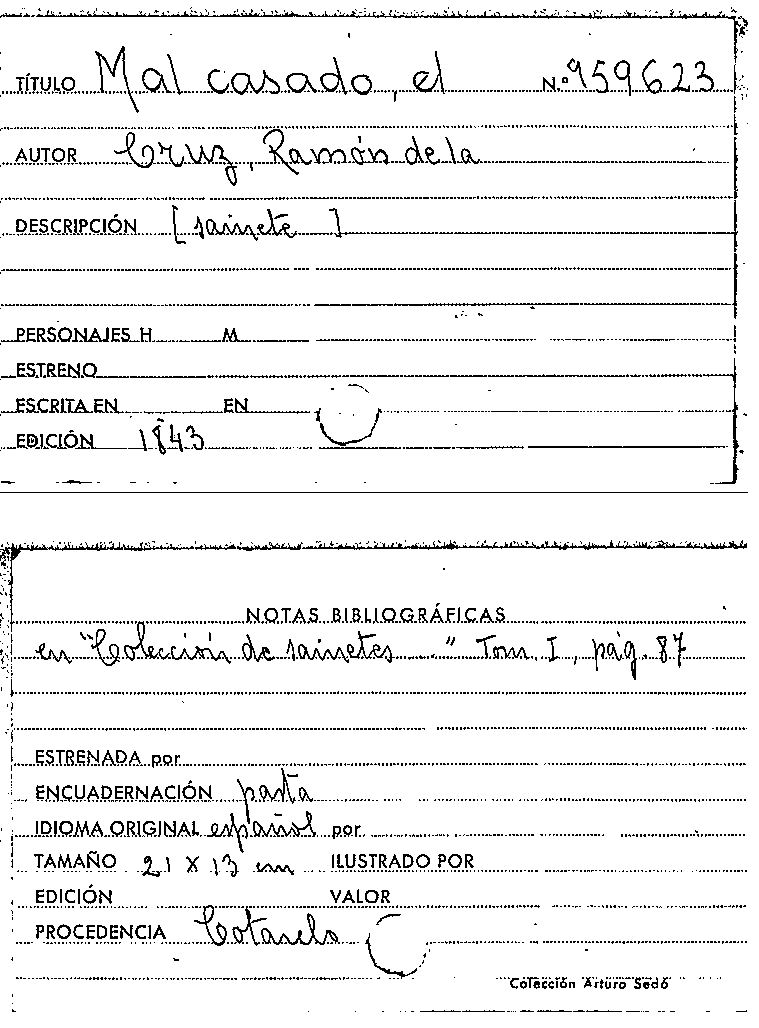 TÍTULO Mal casado, el N.º 959623
AUTOR Cruz, Ramón de la
DESCRIPCIÓN [sainete]
PERSONAJES H M
ESTRENO
ESCRITA EN EN
EDICIÓN 1843
NOTAS BIBLIOGRÁFICAS
en "Colección de sainetes..." Tom. I, pág. 87
ESTRENADA por
ENCUADERNACIÓN pasta
IDIOMA ORIGINAL español por
TAMAÑO 21 X 13 cm ILUSTRADO POR
EDICIÓN VALOR
PROCEDENCIA Cotarelo
Colección Arturo Sedó